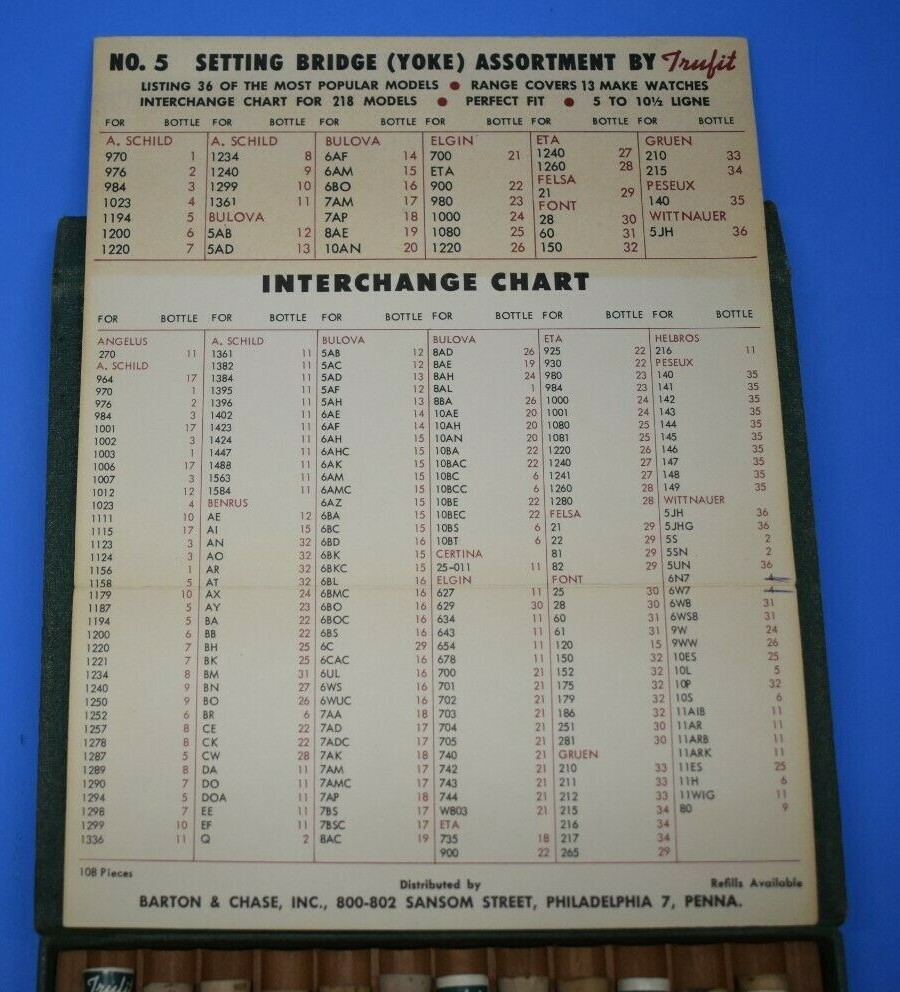 NO. 5 SETTING BRIDGE (YOKE) ASSORTMENT BY Trufit
LISTING 36 OF THE MOST POPULAR MODELS ● RANGE COVERS 13 MAKE WATCHES
INTERCHANGE CHART FOR 218 MODELS ● PERFECT FIT ● 5 TO 10½ LIGNE
FOR BOTTLE
A. SCHILD
970 1
976 2
984 3
1023 4
1194 5
1200 6
1220 7
FOR BOTTLE
A. SCHILD
1234 8
1240 9
1299 10
1361 11
BULOVA
5AB 12
5AD 13
FOR BOTTLE
BULOVA
6AF 14
6AM 15
6BO 16
7AM 17
7AP 18
8AE 19
10AN 20
FOR BOTTLE
ELGIN
700 21
ETA
900 22
980 23
1000 24
1080 25
1220 26
FOR BOTTLE
ETA
1240 27
1260 28
FELSA
21 29
FONT
28 30
60 31
150 32
FOR BOTTLE
GRUEN
210 33
215 34
PESEUX
140 35
WITTNAUER
5JH 36
INTERCHANGE CHART
FOR BOTTLE
ANGELUS
270 11
A. SCHILD
964 17
970 1
976 2
984 3
1001 17
1002 3
1003 1
1006 17
1007 3
1012 12
1023 4
1111 10
1115 17
1123 3
1124 3
1156 1
1158 5
1179 10
1187 5
1194 5
1200 6
1220 7
1221 7
1234 8
1240 9
1250 9
1252 6
1257 8
1278 8
1287 5
1289 8
1290 7
1294 5
1298 7
1299 10
1336 11
FOR BOTTLE
A. SCHILD
1361 11
1382 11
1384 11
1395 11
1396 11
1402 11
1423 11
1424 11
1447 11
1488 11
1563 11
1584 11
BENRUS
AE 12
AI 15
AN 32
AO 32
AR 32
AT 32
AX 24
AY 23
BA 22
BB 22
BH 25
BK 25
BM 31
BN 27
BO 26
BR 6
CE 22
CK 22
CW 28
DA 11
DO 11
DOA 11
EE 11
EF 11
Q 2
FOR BOTTLE
BULOVA
5AB 12
5AC 12
5AD 13
5AF 12
5AH 13
6AE 14
6AF 14
6AH 15
6AHC 15
6AK 15
6AM 15
6AMC 15
6AZ 15
6BA 15
6BC 15
6BD 16
6BK 15
6BKC 15
6BL 16
6BMC 16
6BO 16
6BOC 16
6BS 16
6C 29
6CAC 16
6UL 16
6WS 16
6WUC 16
7AA 18
7AD 17
7ADC 17
7AK 18
7AM 17
7AMC 17
7AP 18
7BS 17
7BSC 17
8AC 19
FOR BOTTLE
BULOVA
8AD 26
8AE 19
8AH 24
8AL 1
8BA 26
10AE 20
10AH 20
10AN 20
10BA 22
10BAC 22
10BC 6
10BCC 6
10BE 22
10BEC 22
10BS 6
10BT 6
CERTINA
25-011 11
ELGIN
627 11
629 30
634 11
643 11
654 11
678 11
700 21
701 21
702 21
703 21
704 21
705 21
740 21
742 21
743 21
744 21
WB03 21
ETA
735 18
900 22
FOR BOTTLE
ETA
925 22
930 22
980 23
984 23
1000 24
1001 24
1080 25
1081 25
1220 26
1240 27
1241 27
1260 28
1280 28
FELSA
21 29
22 29
81 29
82 29
FONT
25 30
28 30
60 31
61 31
120 15
150 32
152 32
175 32
179 32
186 32
251 30
281 30
GRUEN
210 33
211 33
212 33
215 34
216 34
217 34
265 29
FOR BOTTLE
HELBROS
216 11
PESEUX
140 35
141 35
142 35
143 35
144 35
145 35
146 35
147 35
148 35
149 35
WITTNAUER
5JH 36
5JHG 36
5S 2
5SN 2
5UN 36
6N7 4
6W7 4
6WB 31
6WSB 31
9W 24
9WW 26
10ES 25
10L 5
10P 32
10S 6
11AIB 11
11AR 11
11ARB 11
11ARK 11
11ES 25
11H 6
11WIG 11
80 9
108 Pieces
Distributed by
Refills Available
BARTON & CHASE, INC., 800-802 SANSOM STREET, PHILADELPHIA 7, PENNA.
Trufit